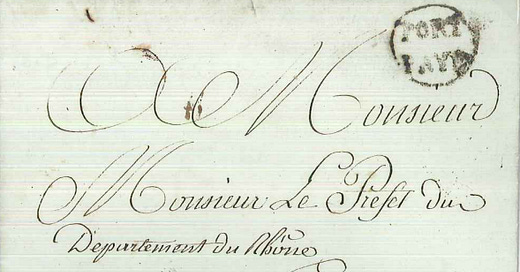 PORT
PAYÉ
A Monsieur
Monsieur Le Prefet du
Département du Rhône